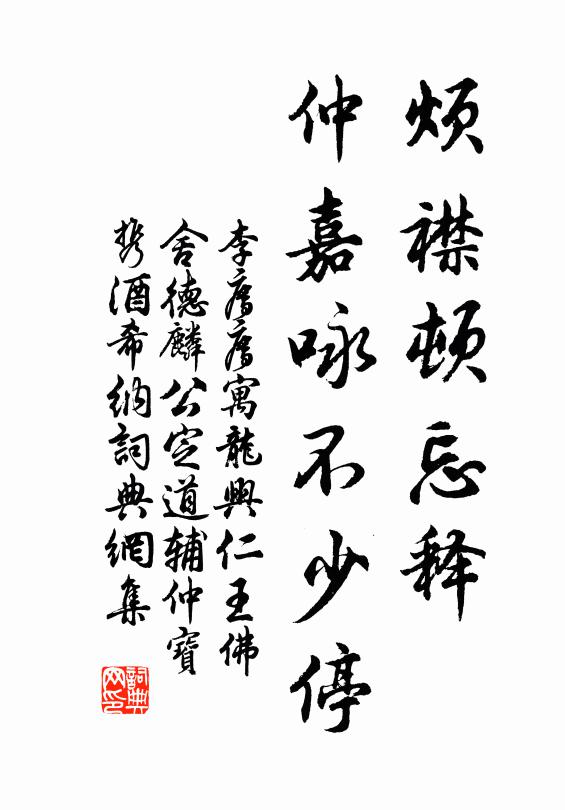 烦襟顿忘释
仲嘉咏不少停
李廌廌寓龍興仁王佛
舍德麟公定道辅仲寶
携酒希納詞典網集
詞典网印